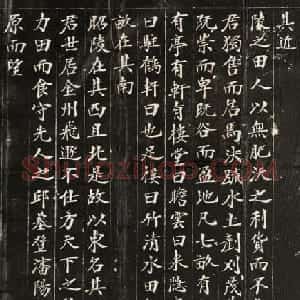 其近
陵之田人以無肥沃之利貨而不
君獨售而居焉決疏水土剷刈茂
既崇而卑既谷而盈地凡七畝有
有亭有軒有樓堂曰瞻雲曰來隱
曰駐鶴軒曰也足樓曰竹清水田
畝在其南
昭陵在其西且北是故以東名其
君世居金州遊仕方天下之
力田而食守先人之邱墓登瀋陽
原而望